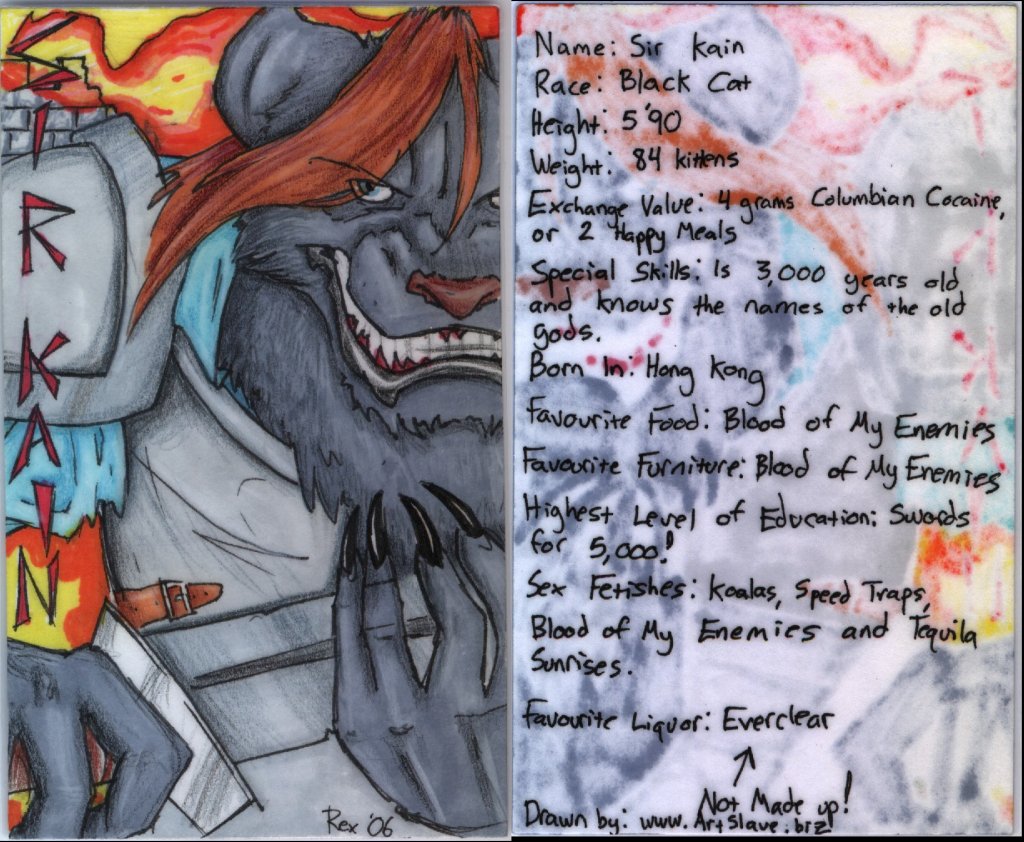 SIR KAIN
Rex '06
Name: Sir Kain
Race: Black Cat
Height: 5'90
Weight: 84 kittens
Exchange Value: 4 grams Columbian Cocaine,
or 2 Happy Meals
Special Skills: Is 3,000 years old
and knows the names of the old
gods.
Born In: Hong Kong
Favourite Food: Blood of My Enemies
Favourite Furniture: Blood of My Enemies
Highest Level of Education: Swords
for 5,000!
Sex Fetishes: Koalas, Speed Traps,
Blood of My Enemies and Tequila
Sunrises.
Favourite Liquor: Everclear
Not Made up!
Drawn by: www.ArtSlave.brz